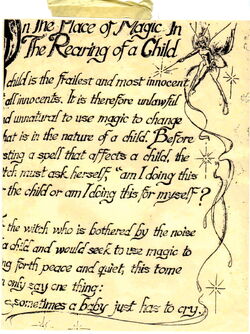 On the Place of Magic In
The Rearing of a Child
child is the frailest and most innocent
all innocents. It is therefore unlawful
unnatural to use magic to change
hat is in the nature of a child. Before
sting a spell that affects a child, the
tch must ask herself, "am I doing this
the child or am I doing this for myself?
the witch who is bothered by the noise
a child and would seek to use magic to
ng forth peace and quiet, this tome
only say one thing:
sometimes a baby just has to cry.